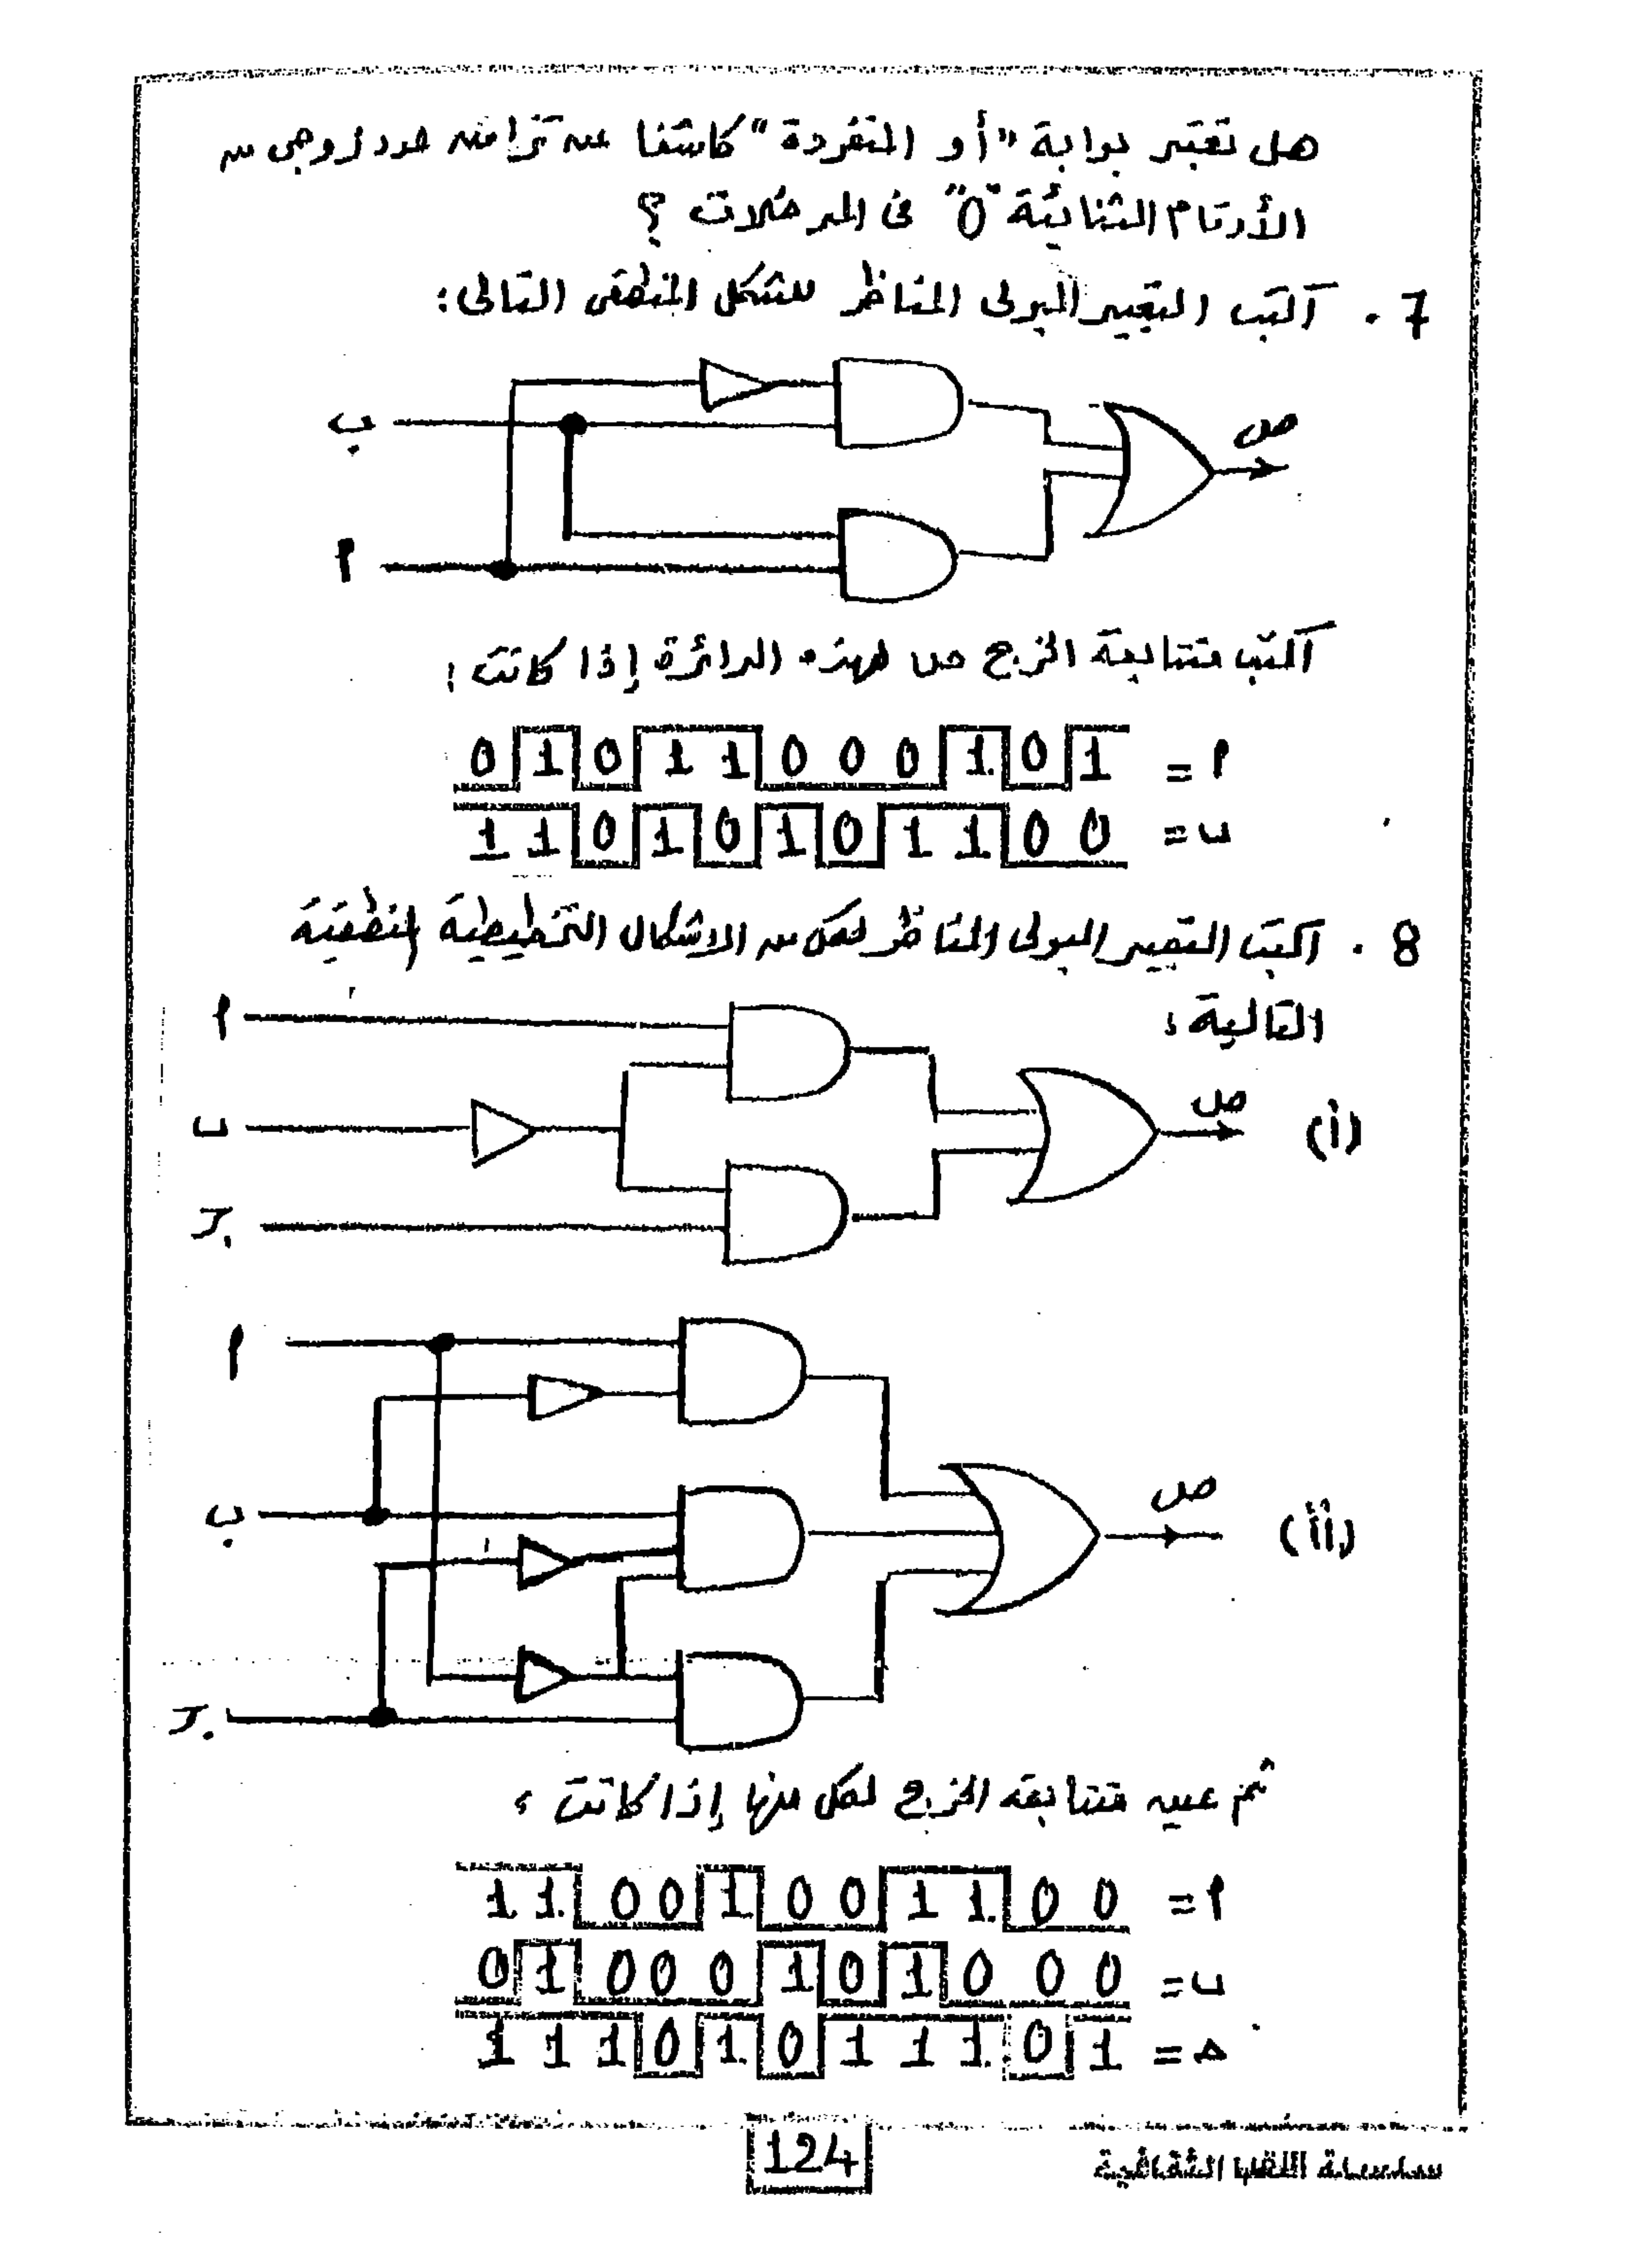 هل تعتبر بوابة "أو المنفردة" كاشفا عن تزامن عدد زوجي من
الأرقام الثنائية "0" في المدخلات ؟
7 . اكتب التعبير البولي المناظر للشكل المنطقي التالي :
ب
ص
أ
اكتب متتابعة الخرج ص لهذه الدائرة إذا كانت :
0 1 0 1 1 0 0 0 1 0 1 = أ
1 1 0 1 0 1 0 1 1 0 0 = ب
8 . اكتب التعبير البولي المناظر لكل من الاشكال التخطيطية المنطقية
التالية :
أ
ب
جـ
ص
(i)
أ
ب
جـ
ص
(ii)
ثم عين متتابعة الخرج لكل منها إذا كانت :
1 1 0 0 1 0 0 1 1 0 0 = أ
0 1 0 0 0 1 0 1 0 0 0 = ب
1 1 1 0 1 0 1 1 1 0 1 = حـ
124
سلسلة اللقاء الثقافية